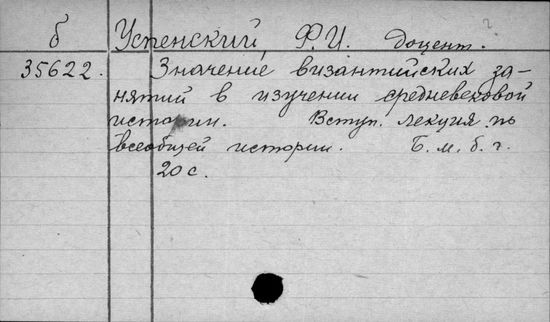 б Успенский, Ф.И. доцент.
35622. Значение византийских за-
нятий в изучении средневековой
истории. Вступ. лекция по
всеобщей истории. Б.м.б.г.
20 с.